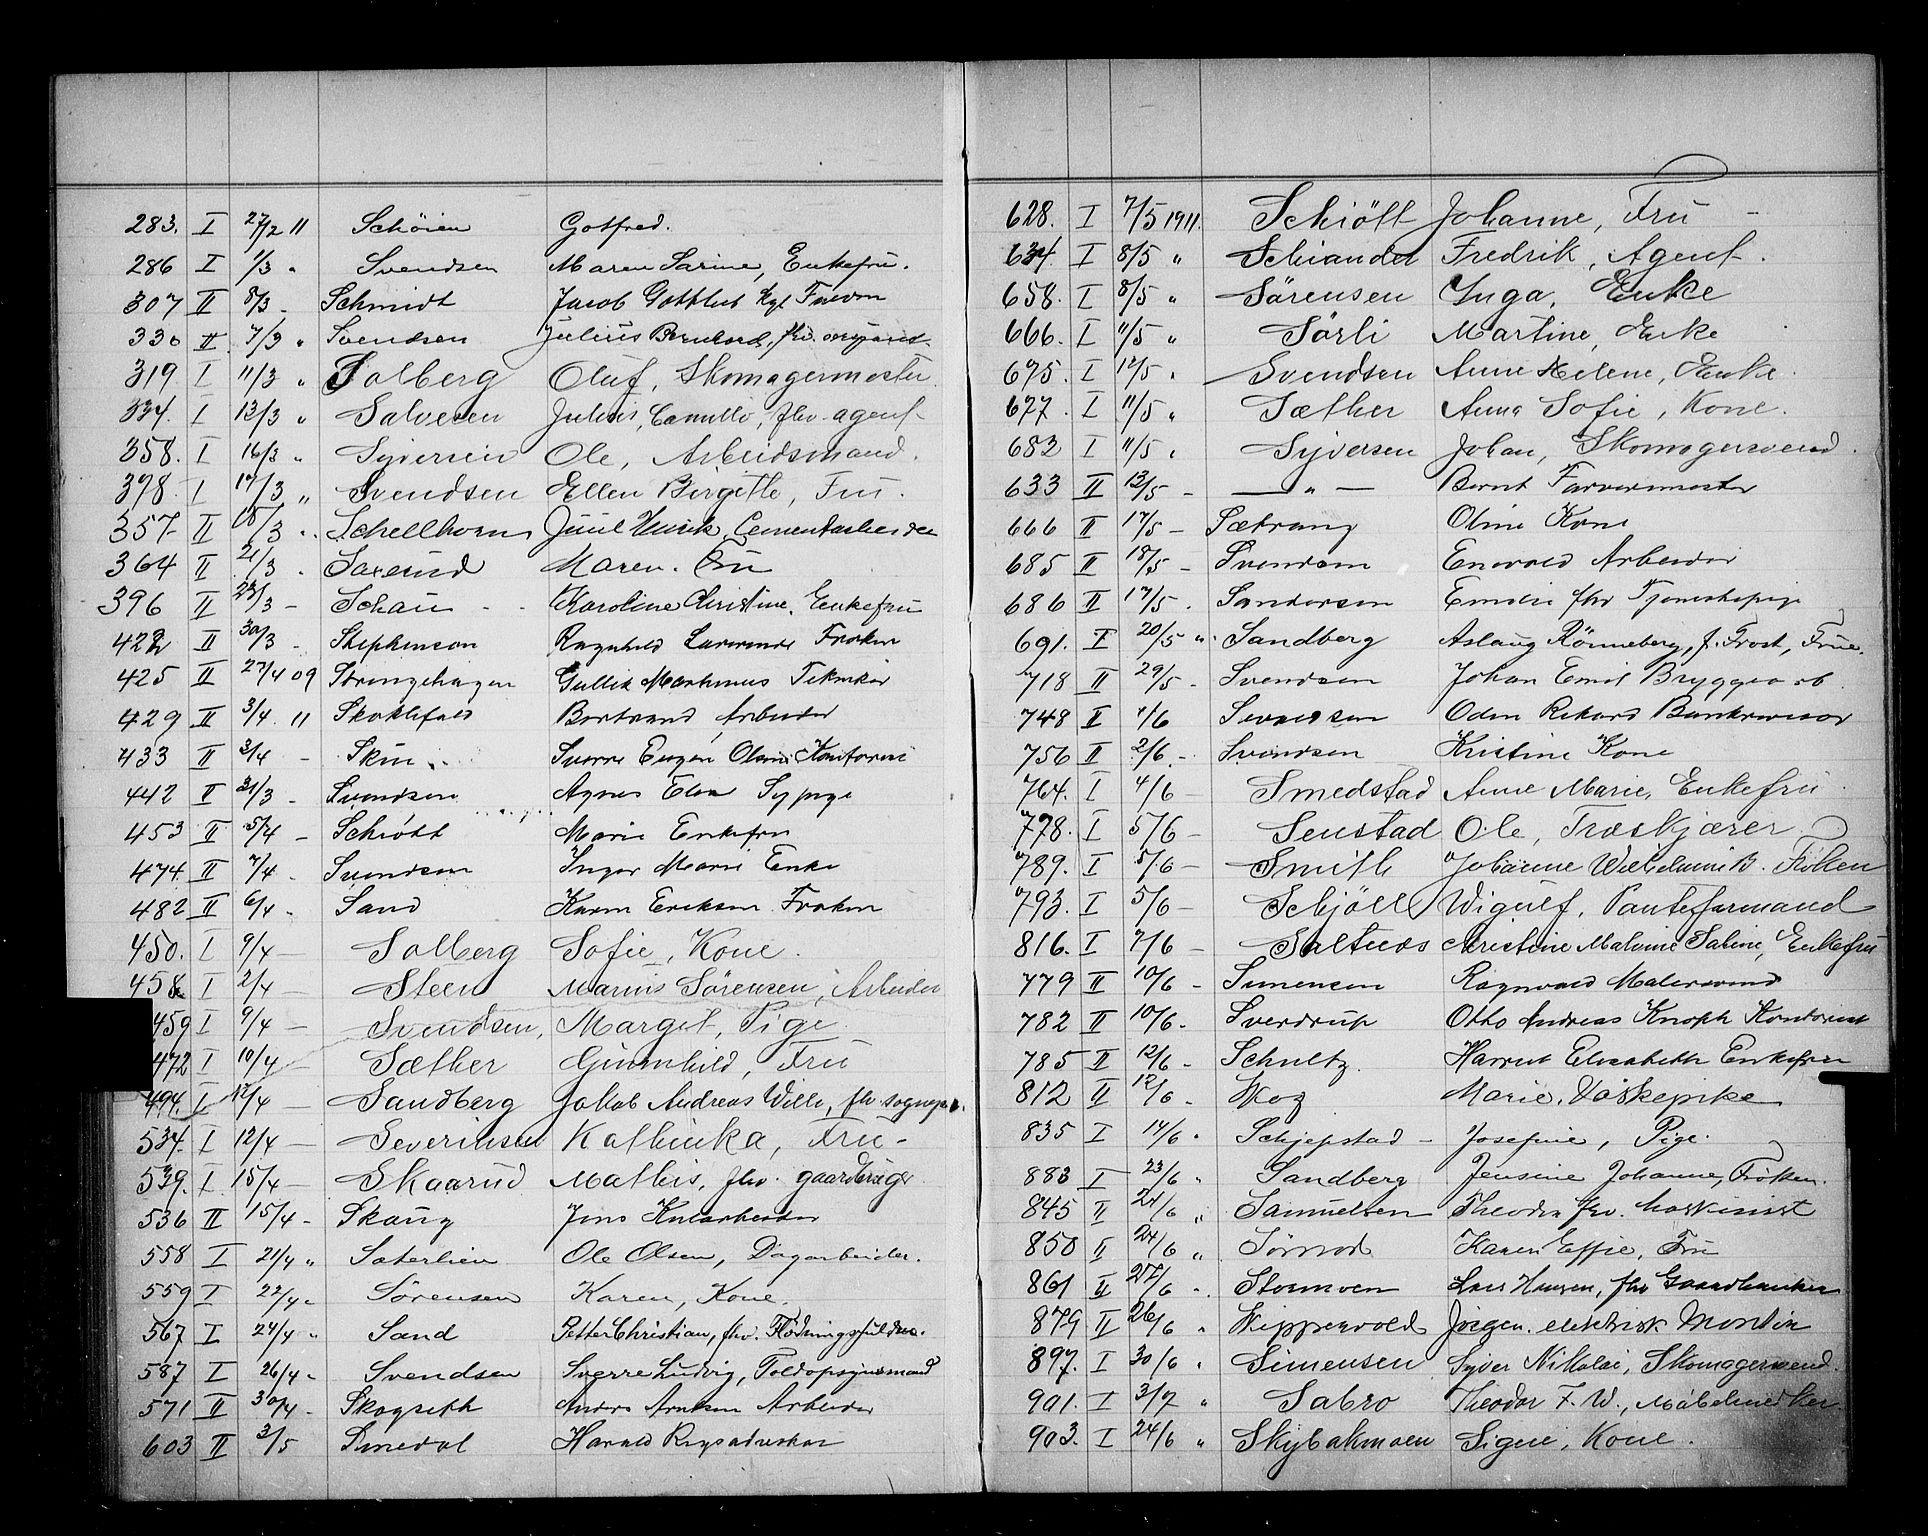 283. I 27/2 11 Schöien Gotfred.
286 I 1/3 " Svendsen Maren Sarine, Enkefru.
307 II 8/3 - Schmidt Jacob Gottlieb Kgl
330 II 7/3 " Svendsen Julius Bernhard, fhv.
319 I 11/3 " Solberg Oluf, Skomagermester
334. I 13/3 " Salvesen Julius, Camillo, fhv. agent
358. I 16/3 " Syversen Ole, Arbeidsmand.
398. I 17/3 " Svendsen Ellen Birgitte, Fru.
357- II 18/3 " Schellhorn Juul Henrik, Cementarbeider
364 II 21/3 . Saxerud Maren. Fru
396 II 23/3 - Schau - - Karoline Christine. Enkefru
422 II 30/3 - Stephenson Ragnhild Frøken
425 II 27/4 09 Strengehagen Gullik Martinius Tekniker
429 II 3/4. 11 Skoklefald Bertrand, Arbeider
433 II 3/4 - Skin Sverre Eugen Olsen Kontorist
442 II 31/3 - Svendsen Agnes Elna Sypige
453 II 5/4 - Schiött Marie Enkefru
474. II 7/4 - Svendsen Inger Marie Enke
482 II 6/4 - Sand Karen Eriksen Frøken
450. I 9/4 - Solberg Sofie, Kone.
458. I 2/4 - Steen Marius Sörensen, Arbeider
459 I 9/4 - Svendsen, Margit, Pige
472 I 10/4 - Sæther Gunnhild, Fru
494. I 12/4 - Sandberg Jakob Andreas Wille, fhv. sognepr.
534. I 12/4 - Severinsen Kathinka, Fru-
539. I 15/4 - Skaarud Mathis, fhv. gaardbruger
536 II 15/4 - Skaug Jens Kularbeider
558 I 21/4 " Saterlien Ole Olsen, Dagarbeider.
559 I 22/4 " Sörensen Karen, Kone.
567 I 24/4 " Sand Petter Christian, fhv.
587 I 26/4 " Svendsen Sverre Ludvig, Toldopsynsmand
571 II 30/4 - Skogseth Anders Arntsen Arbeider
603 II 3/5 Smedal Harald Regjadvokat
628. I 7/5 1911. Schiött Johanne, Fru -
634. I 8/5 " Schiander Fredrik, Agent.
658. I 8/5 " Sörensen Inga, Enke
666. I 11/5 " Sörli Martine, Enke
675. I 12/5 " Svendsen Anne Helene, Enke.
677. I 11/5 " Sæther Anna Sofie, Kone.
682 I 11/5 " Syversen Johan, Skomagersvend.
633 II 13/5 - — " — Bernt Farvermester
666 II 17/5 - Sætrang Oline Kone
685 II 18/5 - Svendsen Enevald Arbeider
686 II 17/5 . Sandersen Emilie fhv Tjenestepige
691. I 20/5 " Sandberg Aslaug Rönneberg, f. Frost, Frue.
718 II 29/5 - Svendsen Johan Emil Bryggearb
748 II 1/6 Svendsen Odin Rikard Bankrevisor
756 II 2/6 - Svendsen Kristine Kone
764. I 4/6 - Smedstad Anne Marie, Enkefru.
778. I 5/6 - Senstad Ole, Træskjærer
789. I 5/6 - Smith Johanne Wilhelmine B. Fröken
793. I 5/6 - Schjöll Wigulf, Pantefuldmand
816. I 7/6 - Saltnes Christine Malvine Sabine, Enkefru
779 II 10/6 - Simensen Ragnvald Malersvend
782 II 10/6 - Sverdrup Otto Andreas Knoph Kontorist
785 II 12/6 - Schultz. Harriet Elisabeth Enkefru
812 II 12/6 - Skog Marie. Vaskepike
835 I 14/6 " Schjepstad - Josefine, Pige.
883 I 23/6 " Sandberg Jensine Johanne, Fröken.
845 II 21/6 " Samuelsen Theodor fhv. Maskinist
850 II 24/6 " Sörmo Karen Effie. Fru
861 II 27/6 " Stormoen Lars Hansen, fhv Gaardbruker
879 II 26/6 " Skippervold Jørgen. elektrisk Montør
897. I 30/6 " Simensen Syver Nikolai, Skomagersvend.
901. I 3/7 " Sabro Theodor F. W., Möbelsnedker
903. I 24/6 " Skybakmoen Signe, Kone.